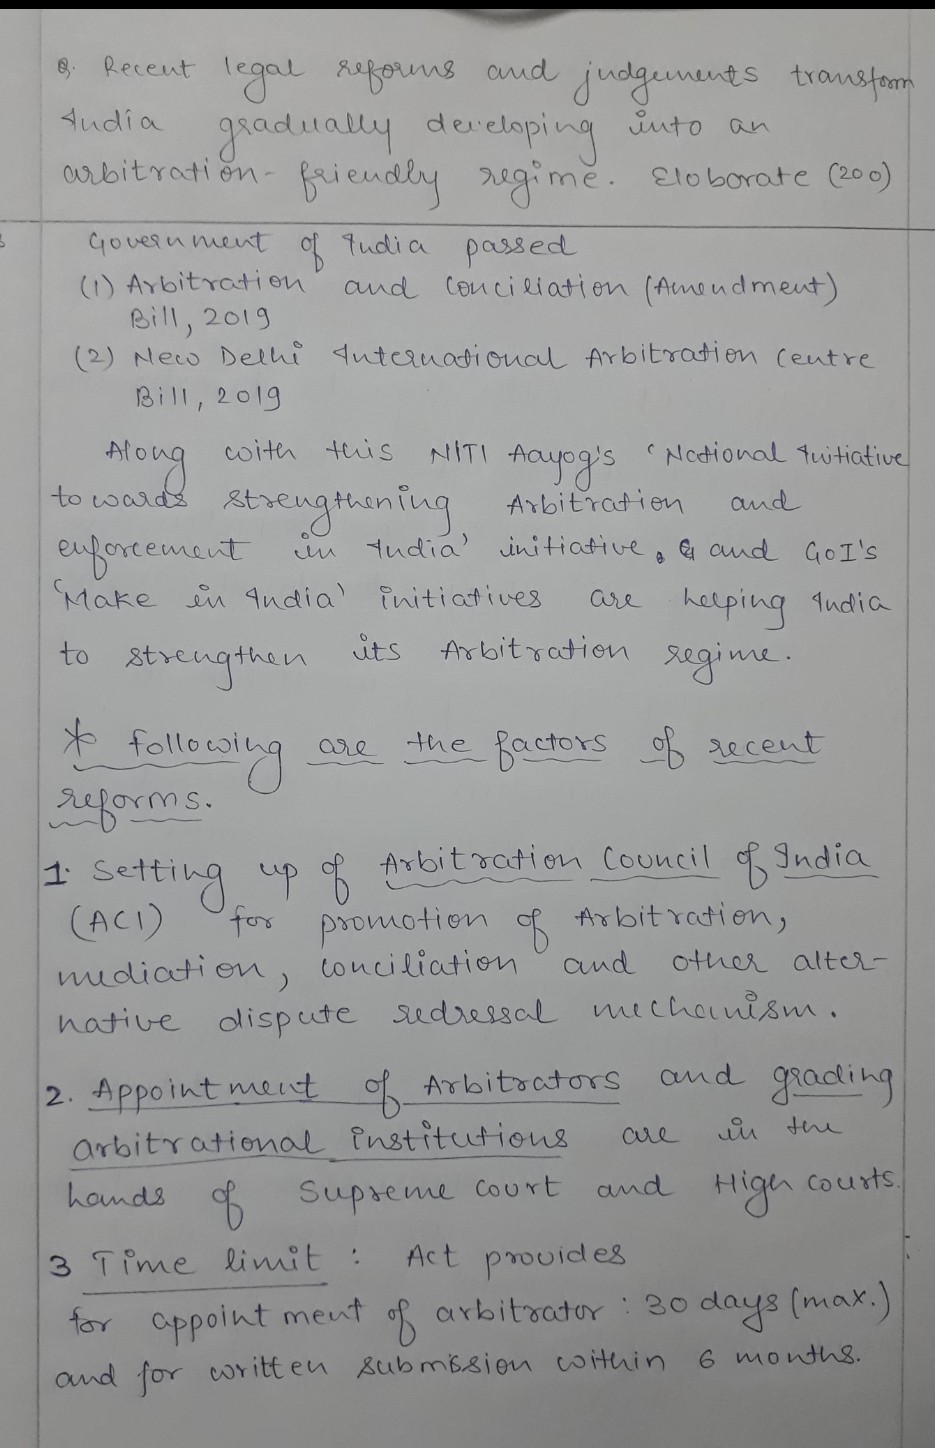 Q. Recent legal reforms and judgements transform
India gradually developing into an
arbitration-friendly regime. Eloborate (200)
Government of India passed
(1) Arbitration and Conciliation (Amendment)
Bill, 2019
(2) New Delhi International Arbitration Centre
Bill, 2019
Along with this NITI Aayog's 'National Initiative
towards strengthening Arbitration and
enforcement in India' initiative, and GoI's
'Make in India' initiatives are helping India
to strengthen its Arbitration regime.
* following are the factors of recent
reforms.
1. Setting up of Arbitration Council of India
(ACI) for promotion of Arbitration,
mediation, conciliation and other alter-
native dispute redressal mechanism.
2. Appointment of Arbitrators and grading
arbitrational institutions are in the
hands of Supreme Court and High courts.
3 Time limit : Act provides
for appointment of arbitrator : 30 days (max.)
and for written submission within 6 months.